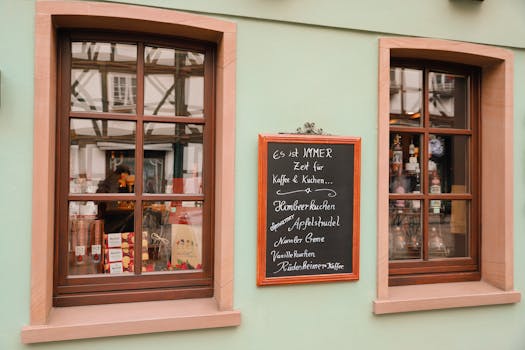 Es ist IMMER
Zeit für
Kaffee & Kuchen...
Himbeerkuchen
Apfelstrudel
Creme
Vanillekuchen
Rüdesheimer Kaffee